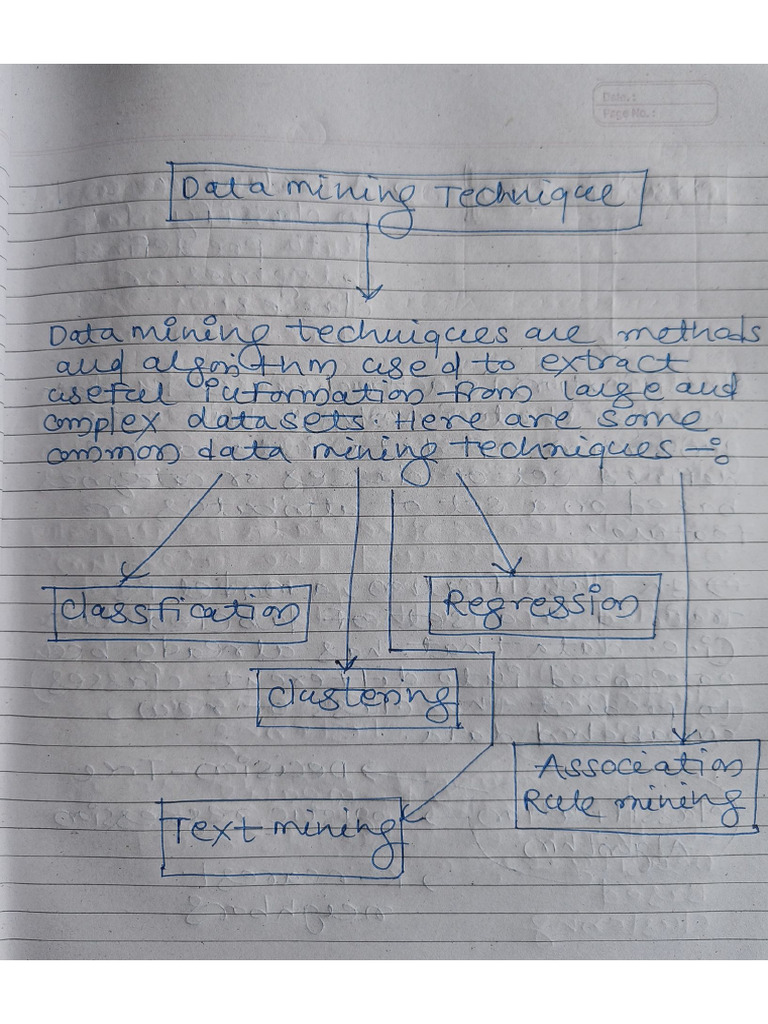 Date. :
Page No. :
Data mining Technique
Data mining techniques are methods
and algorithm used to extract
useful information from large and
complex datasets. Here are some
common data mining techniques -:
Classfication
Regression
Clustering
Association
Rule mining
Text mining